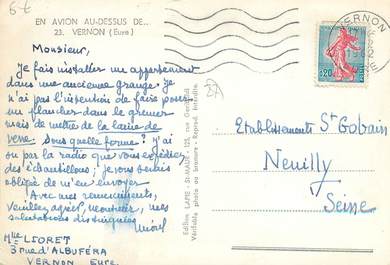 6€
EN AVION AU-DESSUS DE..
23. VERNON (Eure)
Monsieur,
Je fais installer un appartement
dans une ancienne grange. Je
n'ai pas l'intention de faire poser
un plancher dans le grenier
mais de mettre de la laine de
verre. Sous quelle forme? J'ai
ou par la radio que vous expédiez
des échantillons; je vous serais
obligée de m'en envoyer
Avec mes remerciements,
veuillez agréer, Monsieur, mes
salutations distinguées
Mlle LEORET
3 rue d'ALBUFÉRA
VERNON Eure.
Edition LAPIE - St-MAUR - 125, rue Garibaldi
Véritable photo au bromure - Reprod. interdite
27
VERNON
EURE
0,20
Etablissements St Gobain
Neuilly
Seine